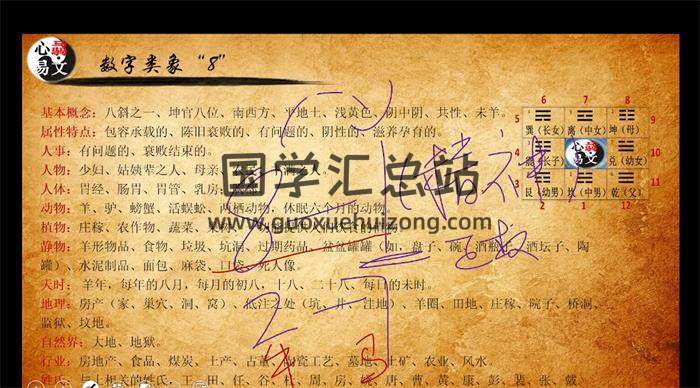 心 易 赢 文
数字类象“8”
基本概念：八斜之一、坤官八位、南西方、平地土、浅黄色、阴中阴、共性、未羊。
属性特点：包容承载的、陈旧衰败的、有问题的、阴性的、滋养孕育的。
人事：有问题的、衰败结束的。
人物：少妇、姑姨辈之人、母亲、
人体：胃经、肠胃、胃管、乳房、
动物：羊、驴、螃蟹、活蜈蚣、两栖动物，休眠六个月的动物。
植物：庄稼、农作物、蔬菜、
静物：羊形物品、食物、垃圾、坑洞、过期药品、盆盆罐罐（如，盘子、碗、酒瓶子、酒坛子、陶
罐）、水泥制品、面包、麻袋、口袋、死人像。
天时：羊年，每年的八月，每月的初八，十八、二十八、每日的未时。
地理：房产（家、巢穴、洞、窝）、低洼之处（坑、井、洼地）、羊圈、田地、庄稼、院子、桥洞、
监狱、坟地。
自然界：大地、地狱。
行业：房地产、食品、煤炭、土产、古董、陶瓷工艺、墓地、土矿、农业、风水。
姓氏：与土相关的姓氏，王、田、任、谷、杜、周、房、姚、唐、曹、黄、康、彭、裴、张、戴
6 7 8
5 巽（长女） 离（中女） 坤（母） 9
4 （长子） 兑（幼女） 10
3 艮（幼男） 坎（中男） 乾（父） 11
2 1 12
国学汇总站
www.guoxuehuizong.com
精神